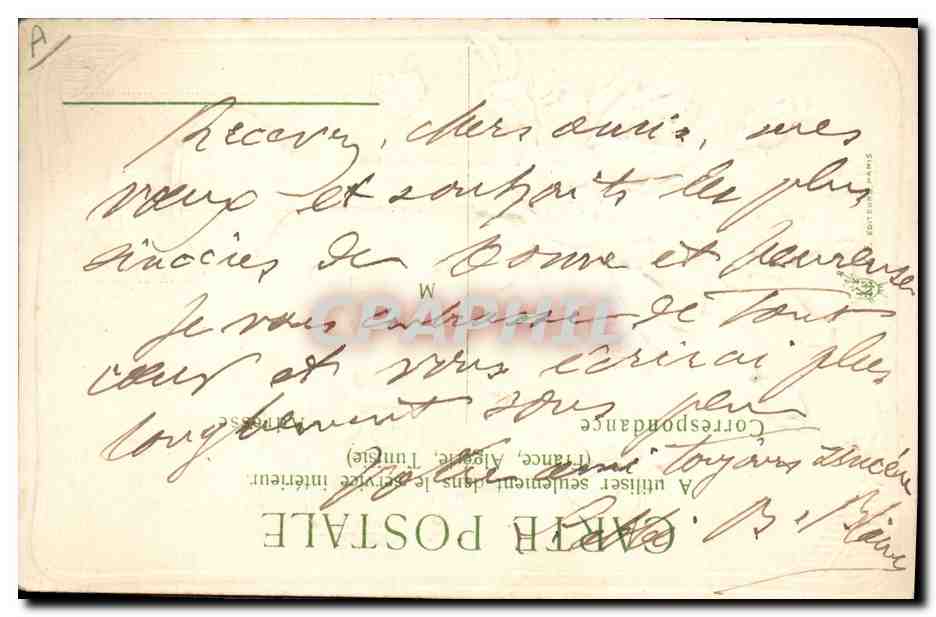 Recevez, chers amis, mes
vœux et souhaits les plus
sincères de bonne et heureuse
M
Je vous embrasse de tout
CPAPHIL
cœur et vous écrirai plus
longuement sous peu
Correspondance
Adresse
(France, Algérie, Tunisie)
toujours sincère
A utiliser seulement dans le service intérieur.
CARTE POSTALE
B
EDITEURS PARIS
A